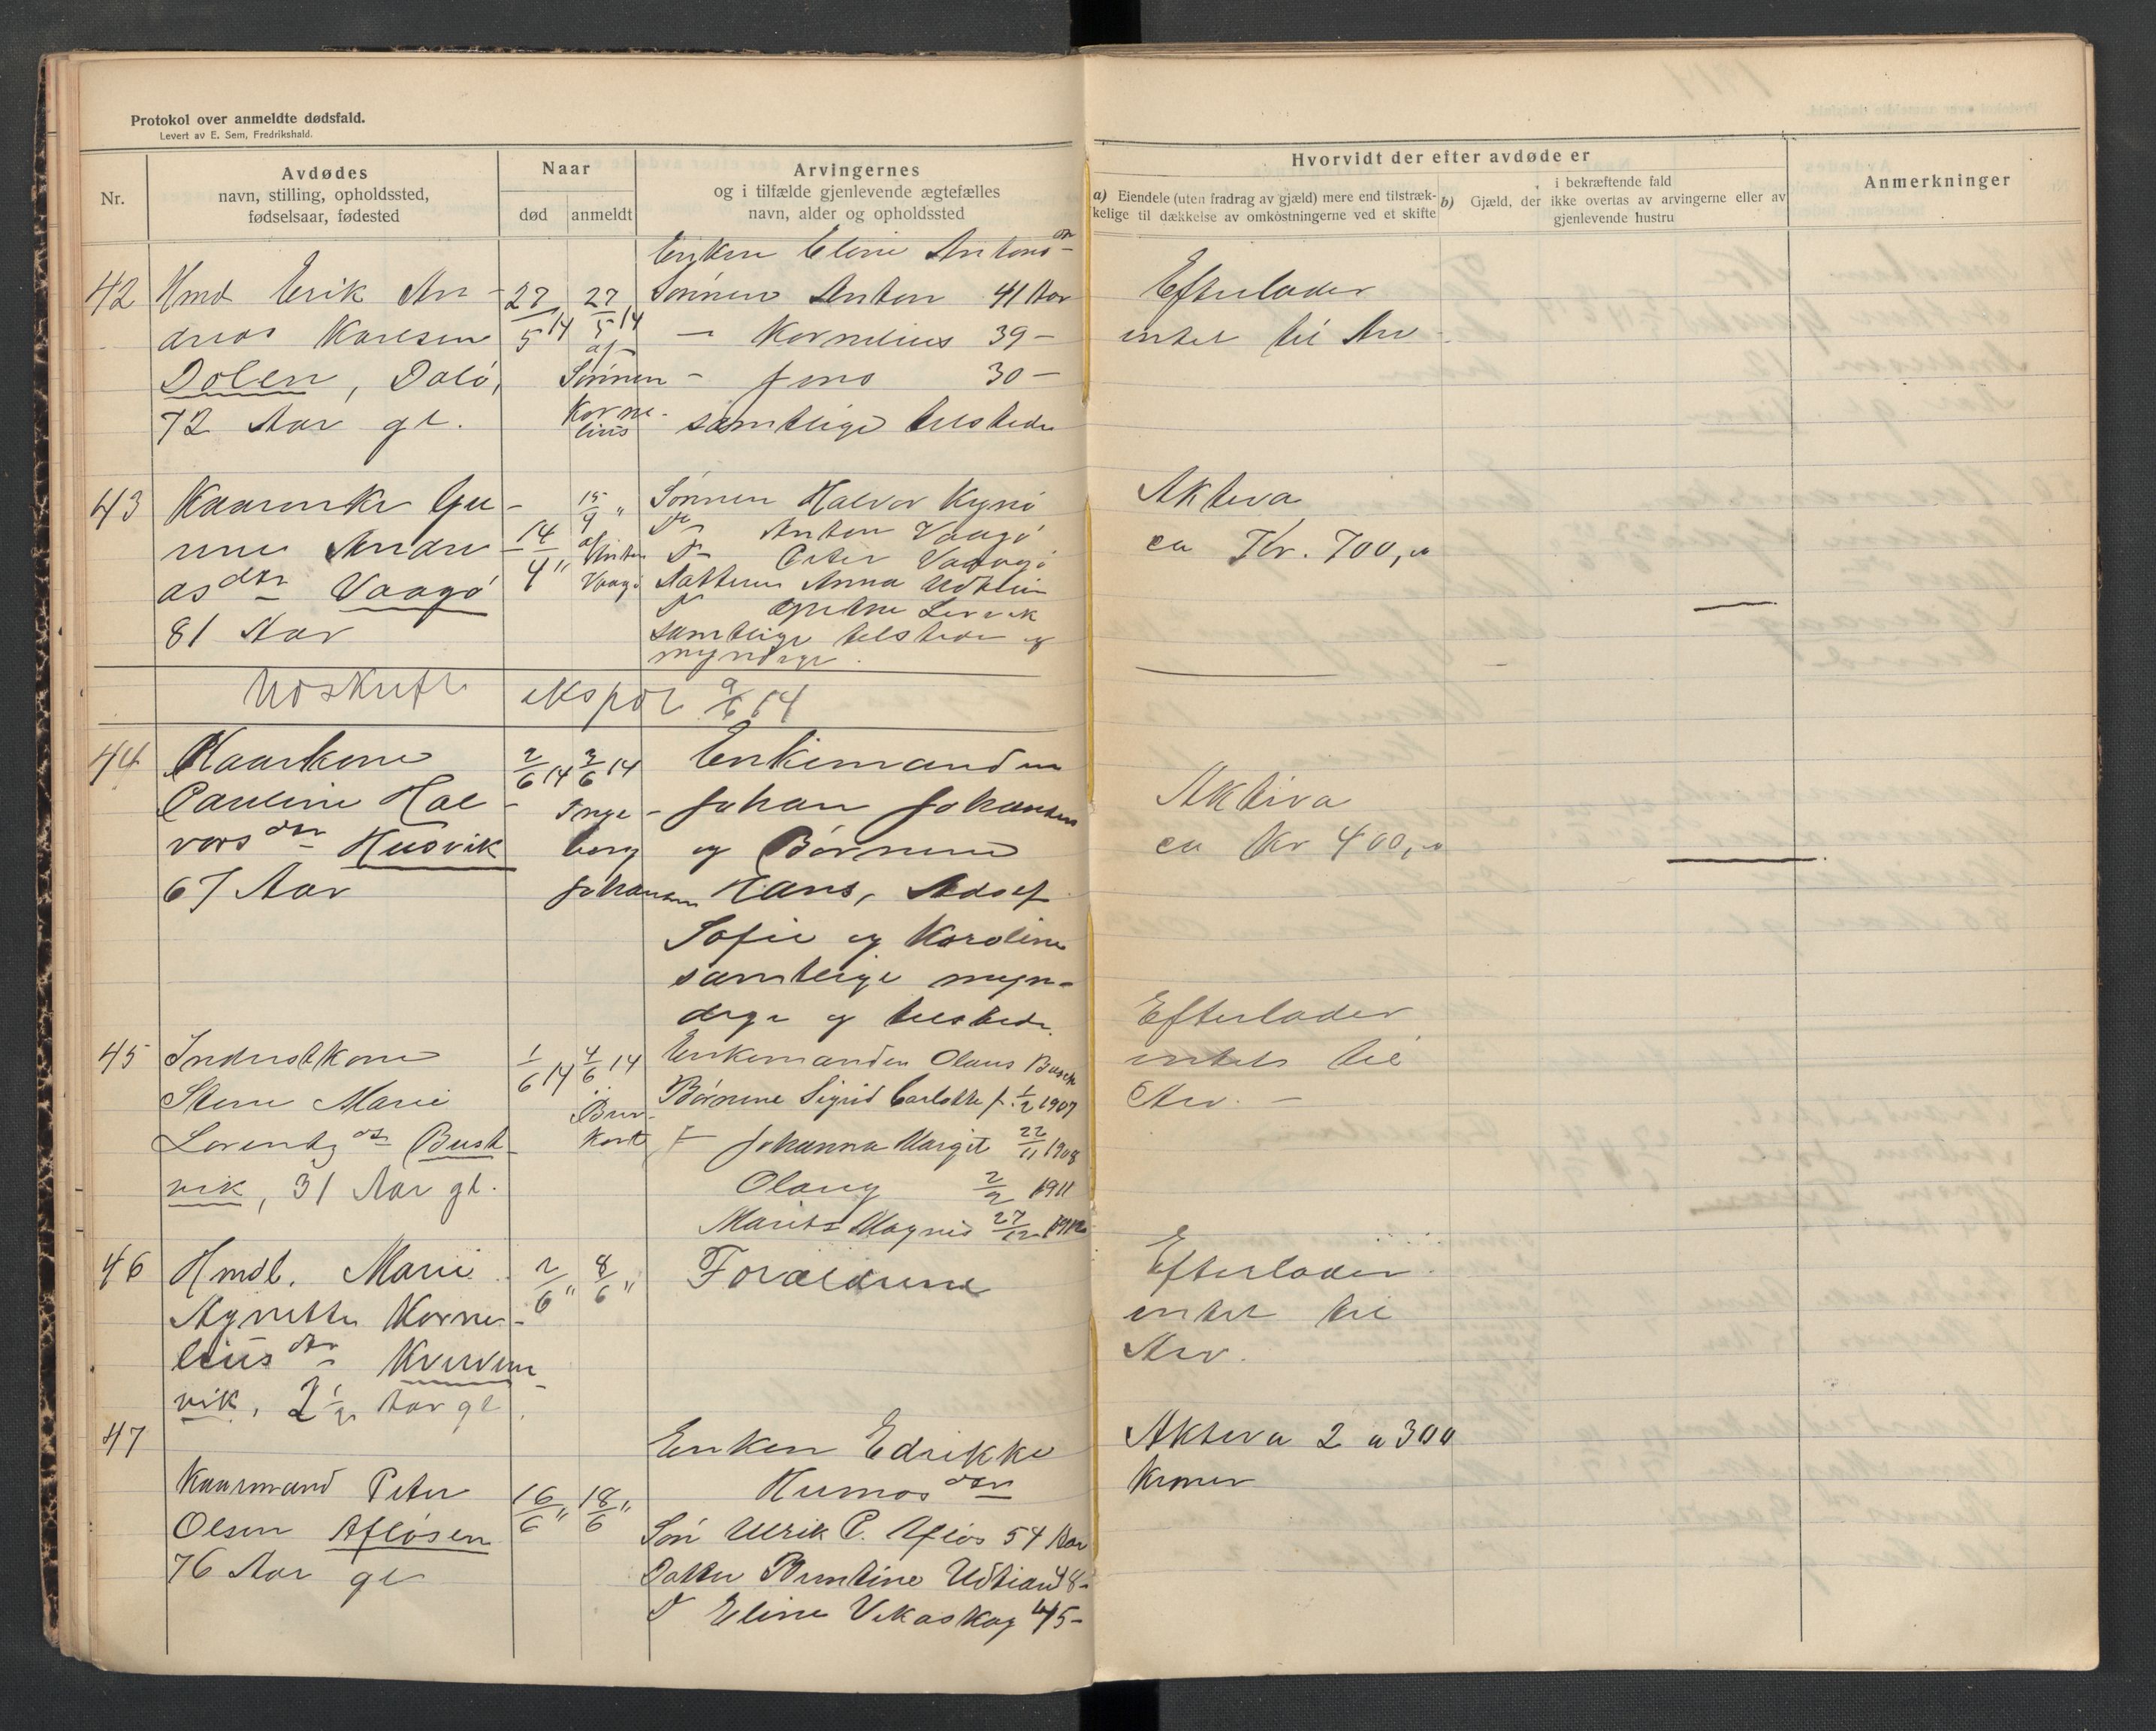 Protokol over anmeldte dødsfald.
Levert av E. Sem, Fredrikshald.
Nr.
Avdødes
navn, stilling, opholdssted,
fødselsaar, fødested
Naar
død
anmeldt
Arvingernes
og i tilfælde gjenlevende ægtefælles
navn, alder og opholdssted
Hvorvidt der efter avdøde er
a) Eiendele (uten fradrag av gjæld) mere end tilstræk-
kelige til dækkelse av omkostningerne ved et skifte
i bekræftende fald
b) Gjæld, der ikke overtas av arvingerne eller av
gjenlevende hustru
Anmerkninger
42
Hmd Erik An-
dreas Karlsen
Dolen, Dolø,
72 Aar gl.
27/5 14
27/5 14
af
Sønnen
Korne-
lius
Enken Eline Antonsdr
Sønnen Anton 41 Aar
— Kornelius 39 —
— Jens 30 —
samtlige tilstede
Efterlader
intet til Arv -
43
Kaarenke Gu-
rine Andre-
asdtr Vaagø
81 Aar
14/4 "
15/4 "
af
Anton
Vaagø
Sønnen Halvor Kynø
Do Anton Vaagø
Do Peter Vaagø
Datteren Anna Udtian
D Grethe Lervik
samtlige tilstede og
myndige.
Aktiva
ca Kr. 700,00
—
Udskrift ekspd 9/6 14
44
Kaarkone
Pauline Hal-
vorsdtr Husvik
67 Aar
2/6 14
3/6 14
Inge-
borg
Johansen
Enkemanden
Johan Johansen
og Børnene
Hans, Adolf
Sofie og Karoline
samtlige myn-
dige og tilstede.
Aktiva
ca Kr 400,00
—
45
Inderstkone
Stene Marie
Lorentzdr Bust-
vik, 31 Aar gl.
1/6 14
4/6 14
Brev-
kort
Enkemanden Olaus Busch
Børnene Sigrid Carlotte f. 1/2 1907
— Johanna Margit 22/11 1908
Olaug 2/2 1911
Marits Magnus 27/12 1912
Efterlader
intet til
Arv. -
46
Hmdb. Marie
Agnethe Korne-
liusdtr Kverven-
vik, 2 1/2 Aar gl.
2/6 "
8/6 "
Forældrene
Efterlader
intet til
Arv.
47
Kaarmand Peter
Olsen Afløsen
76 Aar gl
16/6 "
18/6 "
Enken Edrikke
Kumosdtr
Søn Ulrik P. Afløs 54 Aar
Datter Berntine Udtian 48 -
D Eline Vikaskag 45 -
Aktiva 2 a 300
Kroner